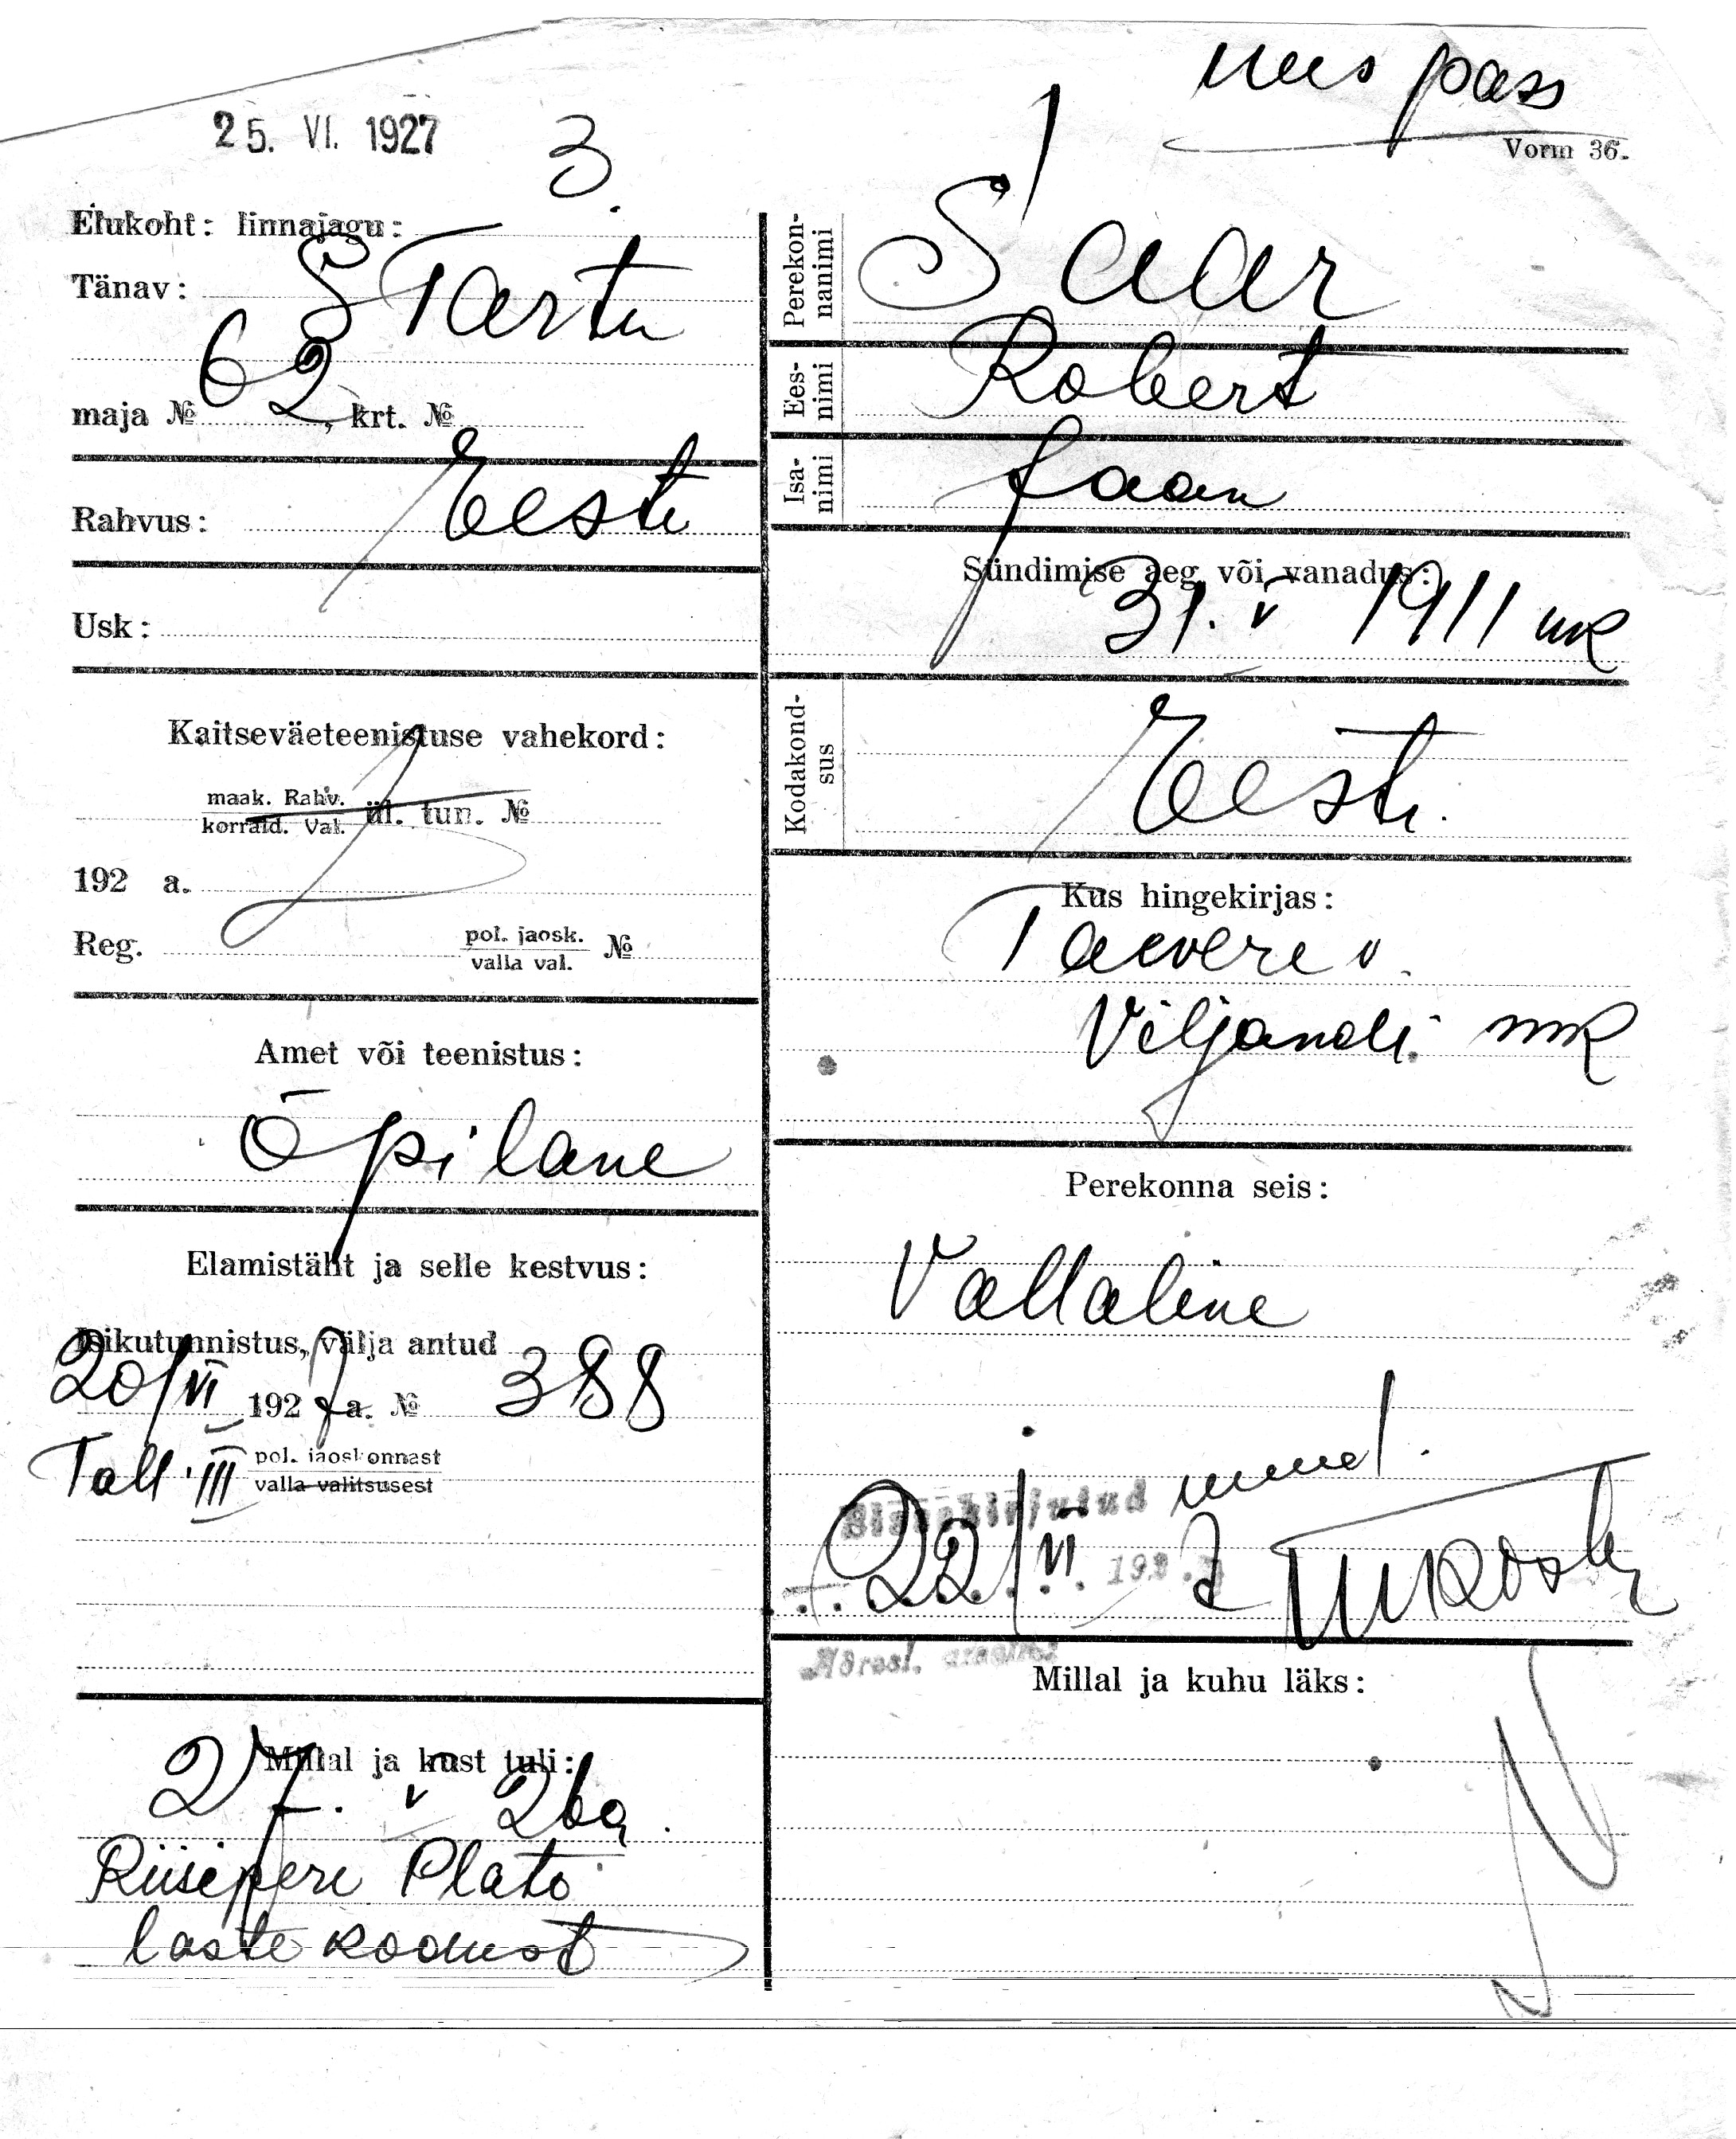 uus pass
25. VI. 1927
3.
Vorm 36.
Elukoht: linnajagu:
Tänav: S Tartu
maja № 62, krt. №
Rahvus: Eesti
Usk:
Kaitseväeteenistuse vahekord:
maak. Rahv.
korrald. Val. ül. tun. №
192 a.
Reg. pol. jaosk.
valla val. №
Amet või teenistus:
Õpilane
Elamistäht ja selle kestvus:
Isikutunnistus, välja antud
20/VI 1927 a. № 388
Tall. III pol. jaoskonnast
valla valitsusest
Millal ja kust tuli:
27. V 26a.
Riisipere Plato
laste kodust
Perekonnanimi Saar
Eesnimi Robert
Isanimi Jaan
Sündimise aeg või vanadus:
31. V 1911
Kodakondsus Eesti
Kus hingekirjas:
Taevere v.
Viljandi mk
Perekonna seis:
Vallaline
Sissekirjutud
22/VI 192
Millal ja kuhu läks: